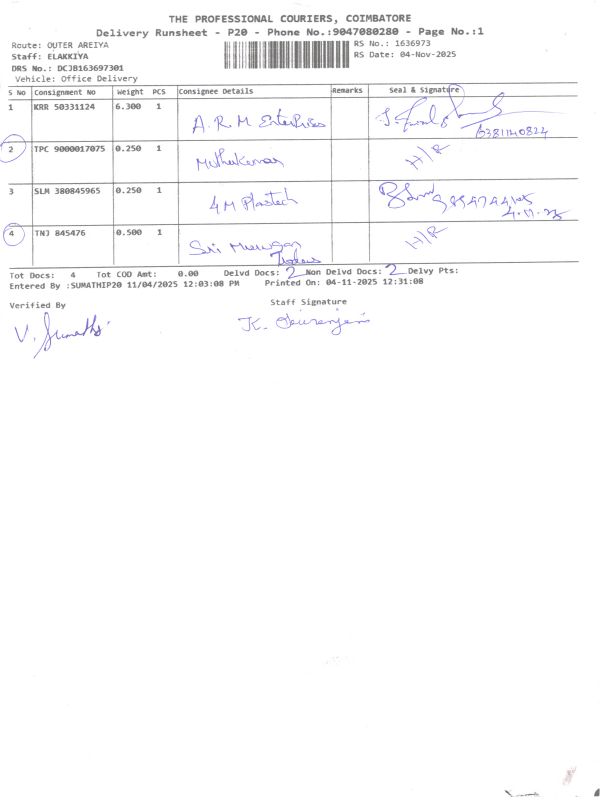 THE PROFESSIONAL COURIERS, COIMBATORE
Delivery Runsheet - P20 - Phone No.:9047080280 - Page No.:1
Route: OUTER AREIYA RS No.: 1636973
Staff: ELAKKIYA RS Date: 04-Nov-2025
DRS No.: DCJB163697301
Vehicle: Office Delivery
S No Consignment No Weight PCS Consignee Details Remarks Seal & Signature
1 KRR 50331124 6.300 1 A. R. M Enterprises
6381140824
2 TPC 9000017075 0.250 1 Muthukumar
3 SLM 380845965 0.250 1 4M Plastech
4.11.25
4 TNJ 845476 0.500 1 Sri Murugan
Tot Docs: 4 Tot COD Amt: 0.00 Delvd Docs: 2 Non Delvd Docs: 2 Delvy Pts:
Entered By :SUMATHIP20 11/04/2025 12:03:08 PM Printed On: 04-11-2025 12:31:08
Verified By Staff Signature
V. Sumathi K.